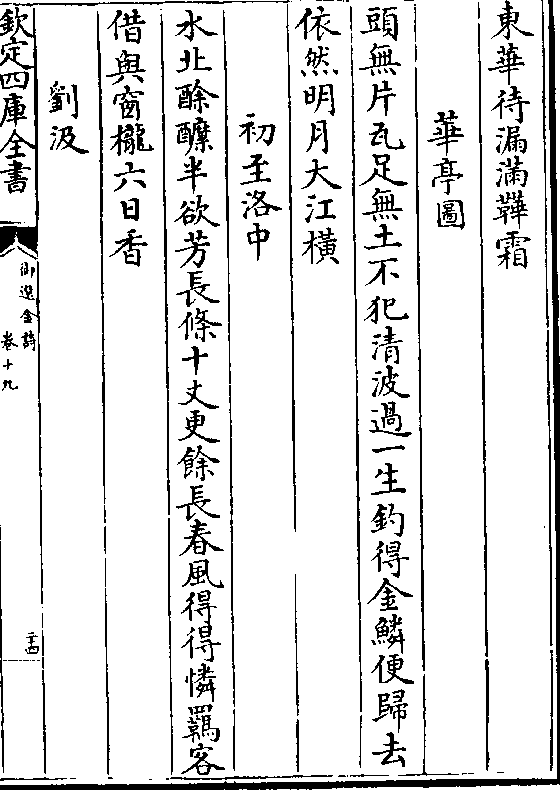 東華待漏滿鞾霜
華亭圖
頭無片瓦足無土不犯清波過一生釣得金鱗便歸去
依然明月大江橫
初至洛中
水北酴醾半欲芳長條十丈更餘長春風得得憐羈客
借與窗櫳六日香
劉汲
欽定四庫全書
御選金詩
卷十九
二十四